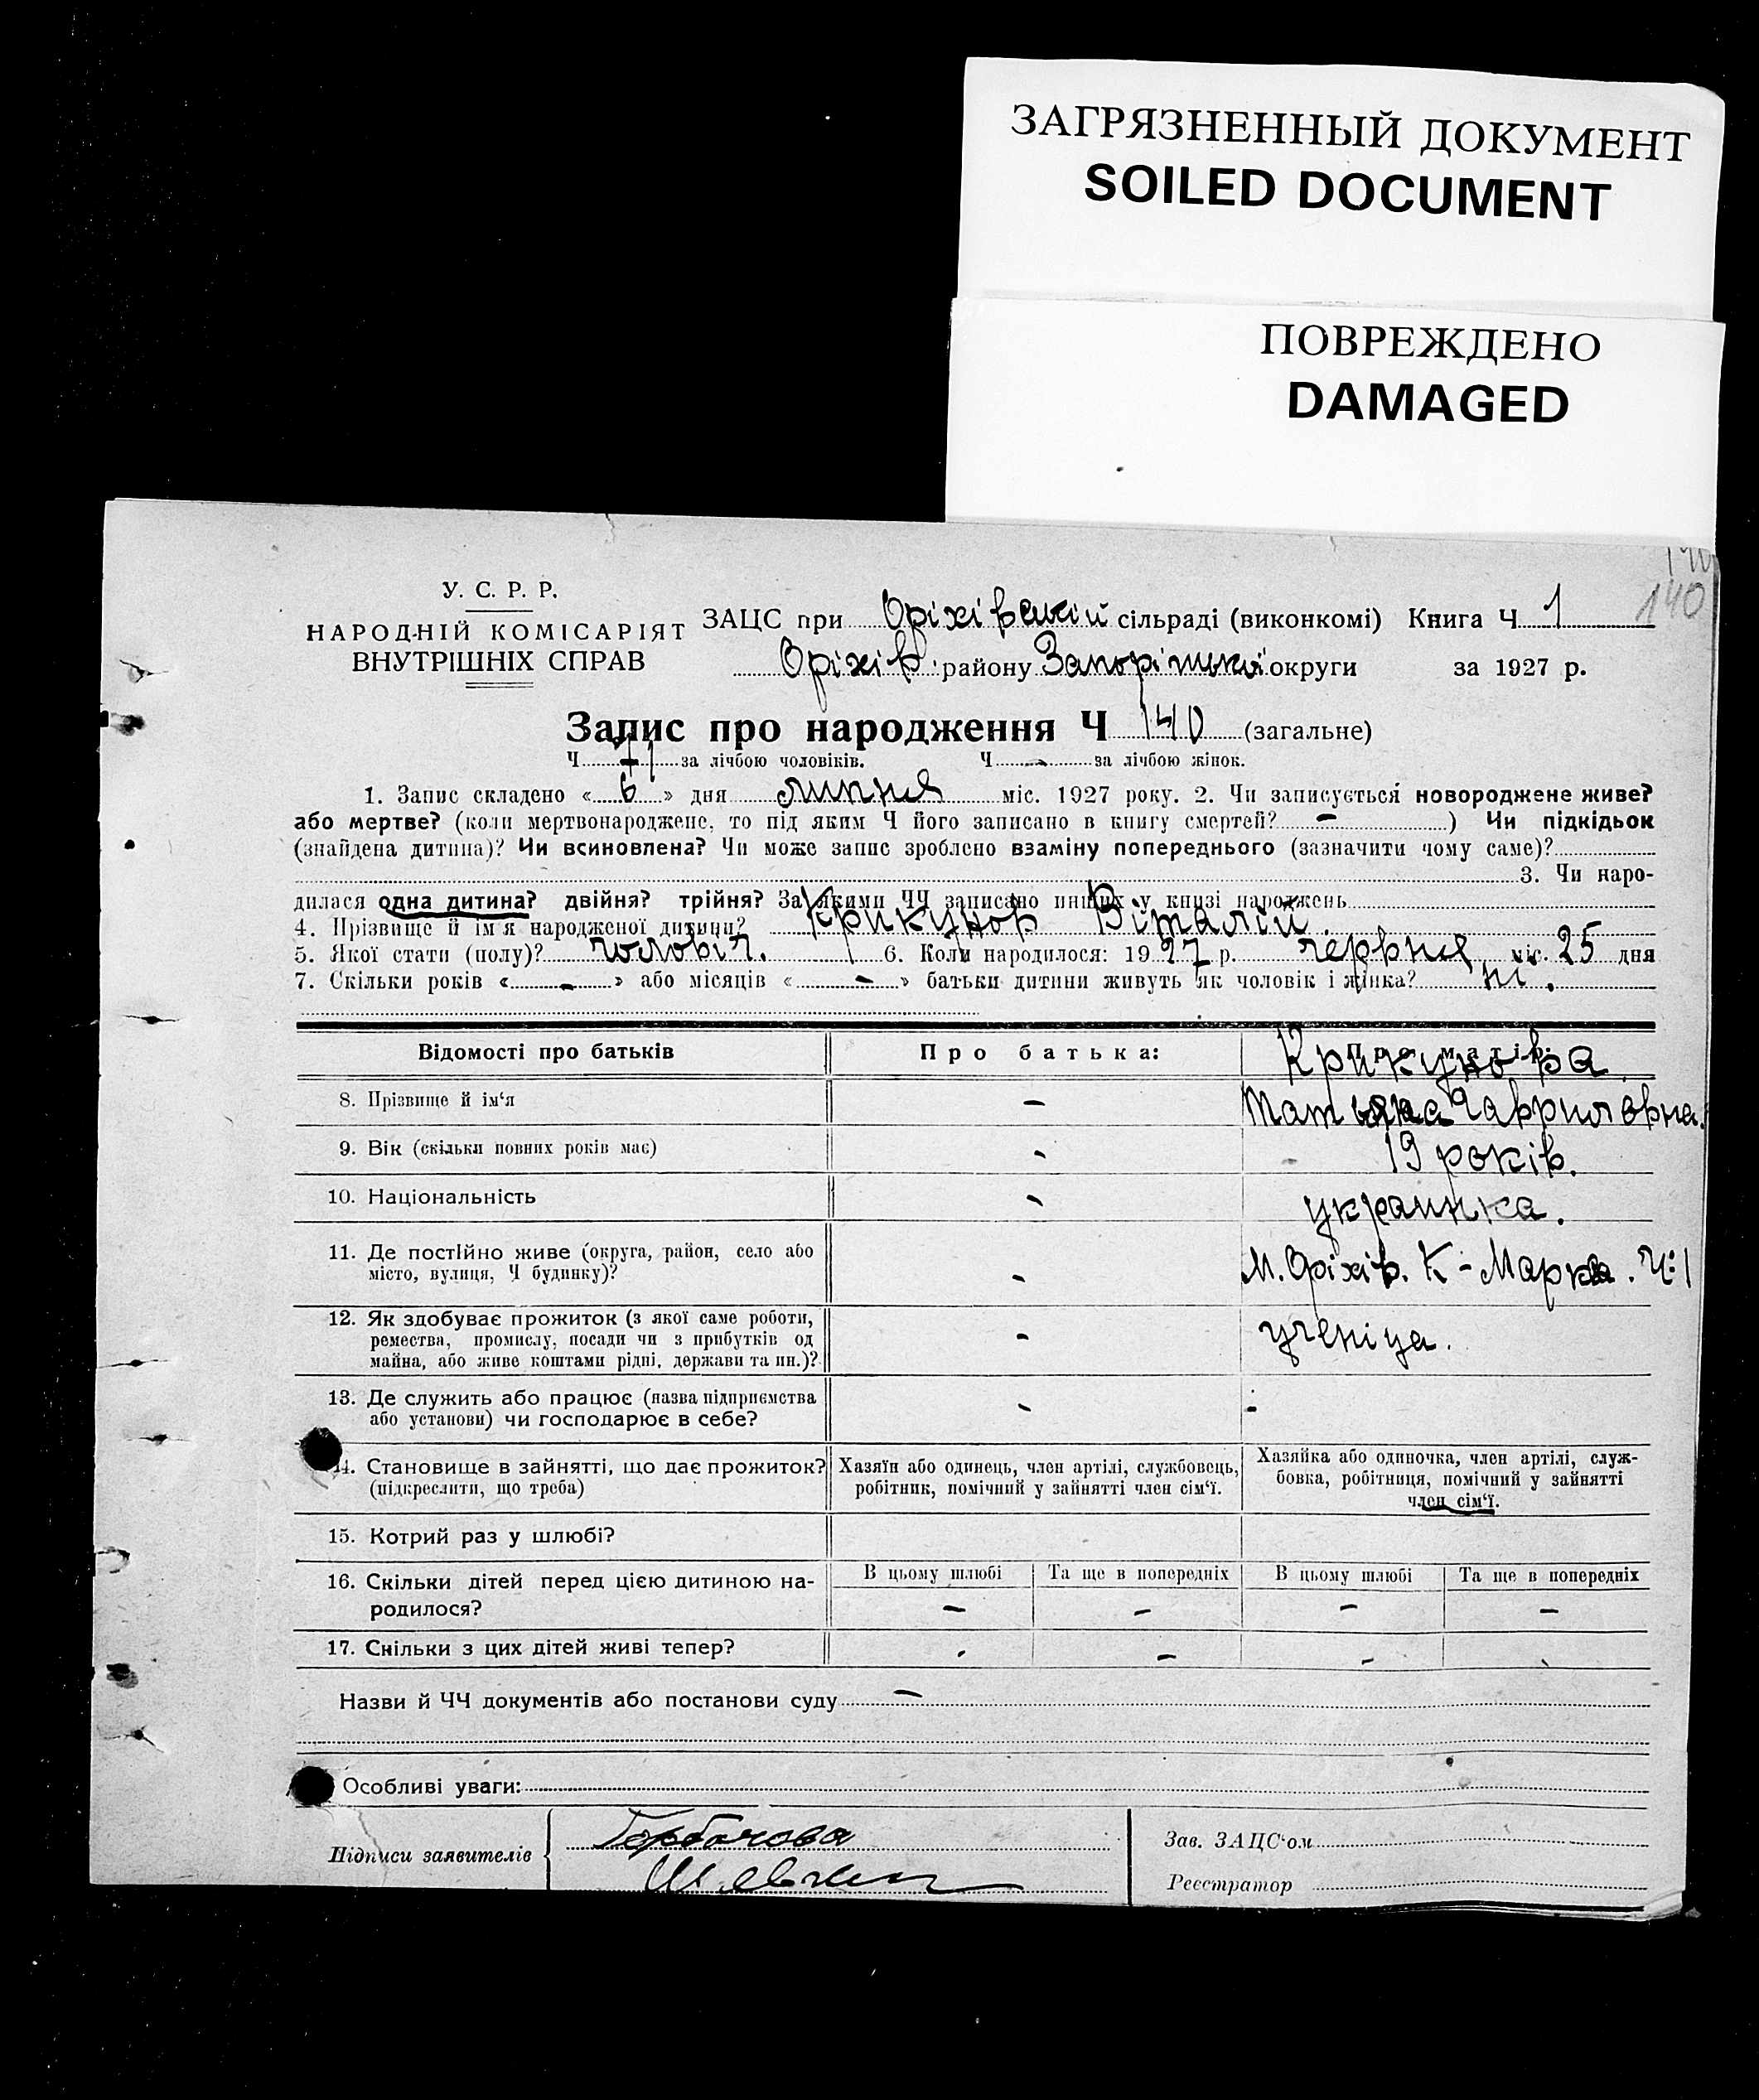 ЗАГРЯЗНЕННЫЙ ДОКУМЕНТ
SOILED DOCUMENT
ПОВРЕЖДЕНО
DAMAGED
140
140
У. С. Р. Р.
НАРОДНІЙ КОМІСАРІЯТ
ВНУТРІШНІХ СПРАВ
ЗАЦС при Оріхівській сільраді (виконкомі) Книга Ч 1
Оріхів району Запоріжської округи за 1927 р.
Запис про народження Ч 140 (загальне)
Ч 71 за лічбою чоловіків. Ч - за лічбою жінок.
1. Запис складено «6» дня липня міс. 1927 року. 2. Чи записується новороджене живе?
або мертве? (коли мертвонароджене, то під яким Ч його записано в книгу смертей? - ) Чи підкідьок
(знайдена дитина)? Чи всиновлена? Чи може запис зроблено взаміну попереднього (зазначити чому саме)?
3. Чи наро-
дилася одна дитина? двійня? трійня? За якими ЧЧ записано инших у книзі народжень
4. Прізвище й ім'я народженої дитини? Крикунов Віталій.
5. Якої стати (полу)? чоловіч. 6. Коли народилося: 1927 р. червня міс. 25 дня
7. Скільки років « - » або місяців « - » батьки дитини живуть як чоловік і жінка? ні.
Відомості про батьків Про батька: Про матір:
Крикунова
8. Прізвище й ім'я - Татьяна Гавриловна.
9. Вік (скільки повних років має) - 19 років.
10. Національність - украинка.
11. Де постійно живе (округа, район, село або
місто, вулиця, Ч будинку)? - М. Оріхів. К-Маркса. Ч:1
12. Як здобуває прожиток (з якої саме роботи,
ремества, промислу, посади чи з прибутків од
майна, або живе коштами рідні, держави та ин.)? - ученіца.
13. Де служить або працює (назва підприємства
або установи) чи господарює в себе? - -
14. Становище в зайнятті, що дає прожиток?
(підкреслити, що треба)
Хазяїн або одинець, член артілі, службовець,
робітник, помічний у зайнятті член сім'ї.
Хазяйка або одиночка, член артілі, служ-
бовка, робітниця, помічний у зайнятті
член сім'ї.
15. Котрий раз у шлюбі?
16. Скільки дітей перед цією дитиною на-
родилося?
В цьому шлюбі Та ще в попередніх В цьому шлюбі Та ще в попередніх
- - - -
17. Скільки з цих дітей живі тепер? - - - -
Назви й ЧЧ документів або постанови суду -
Особливі уваги:
Підписи заявителів Горбачова
Зав. ЗАЦС'ом
Реєстратор